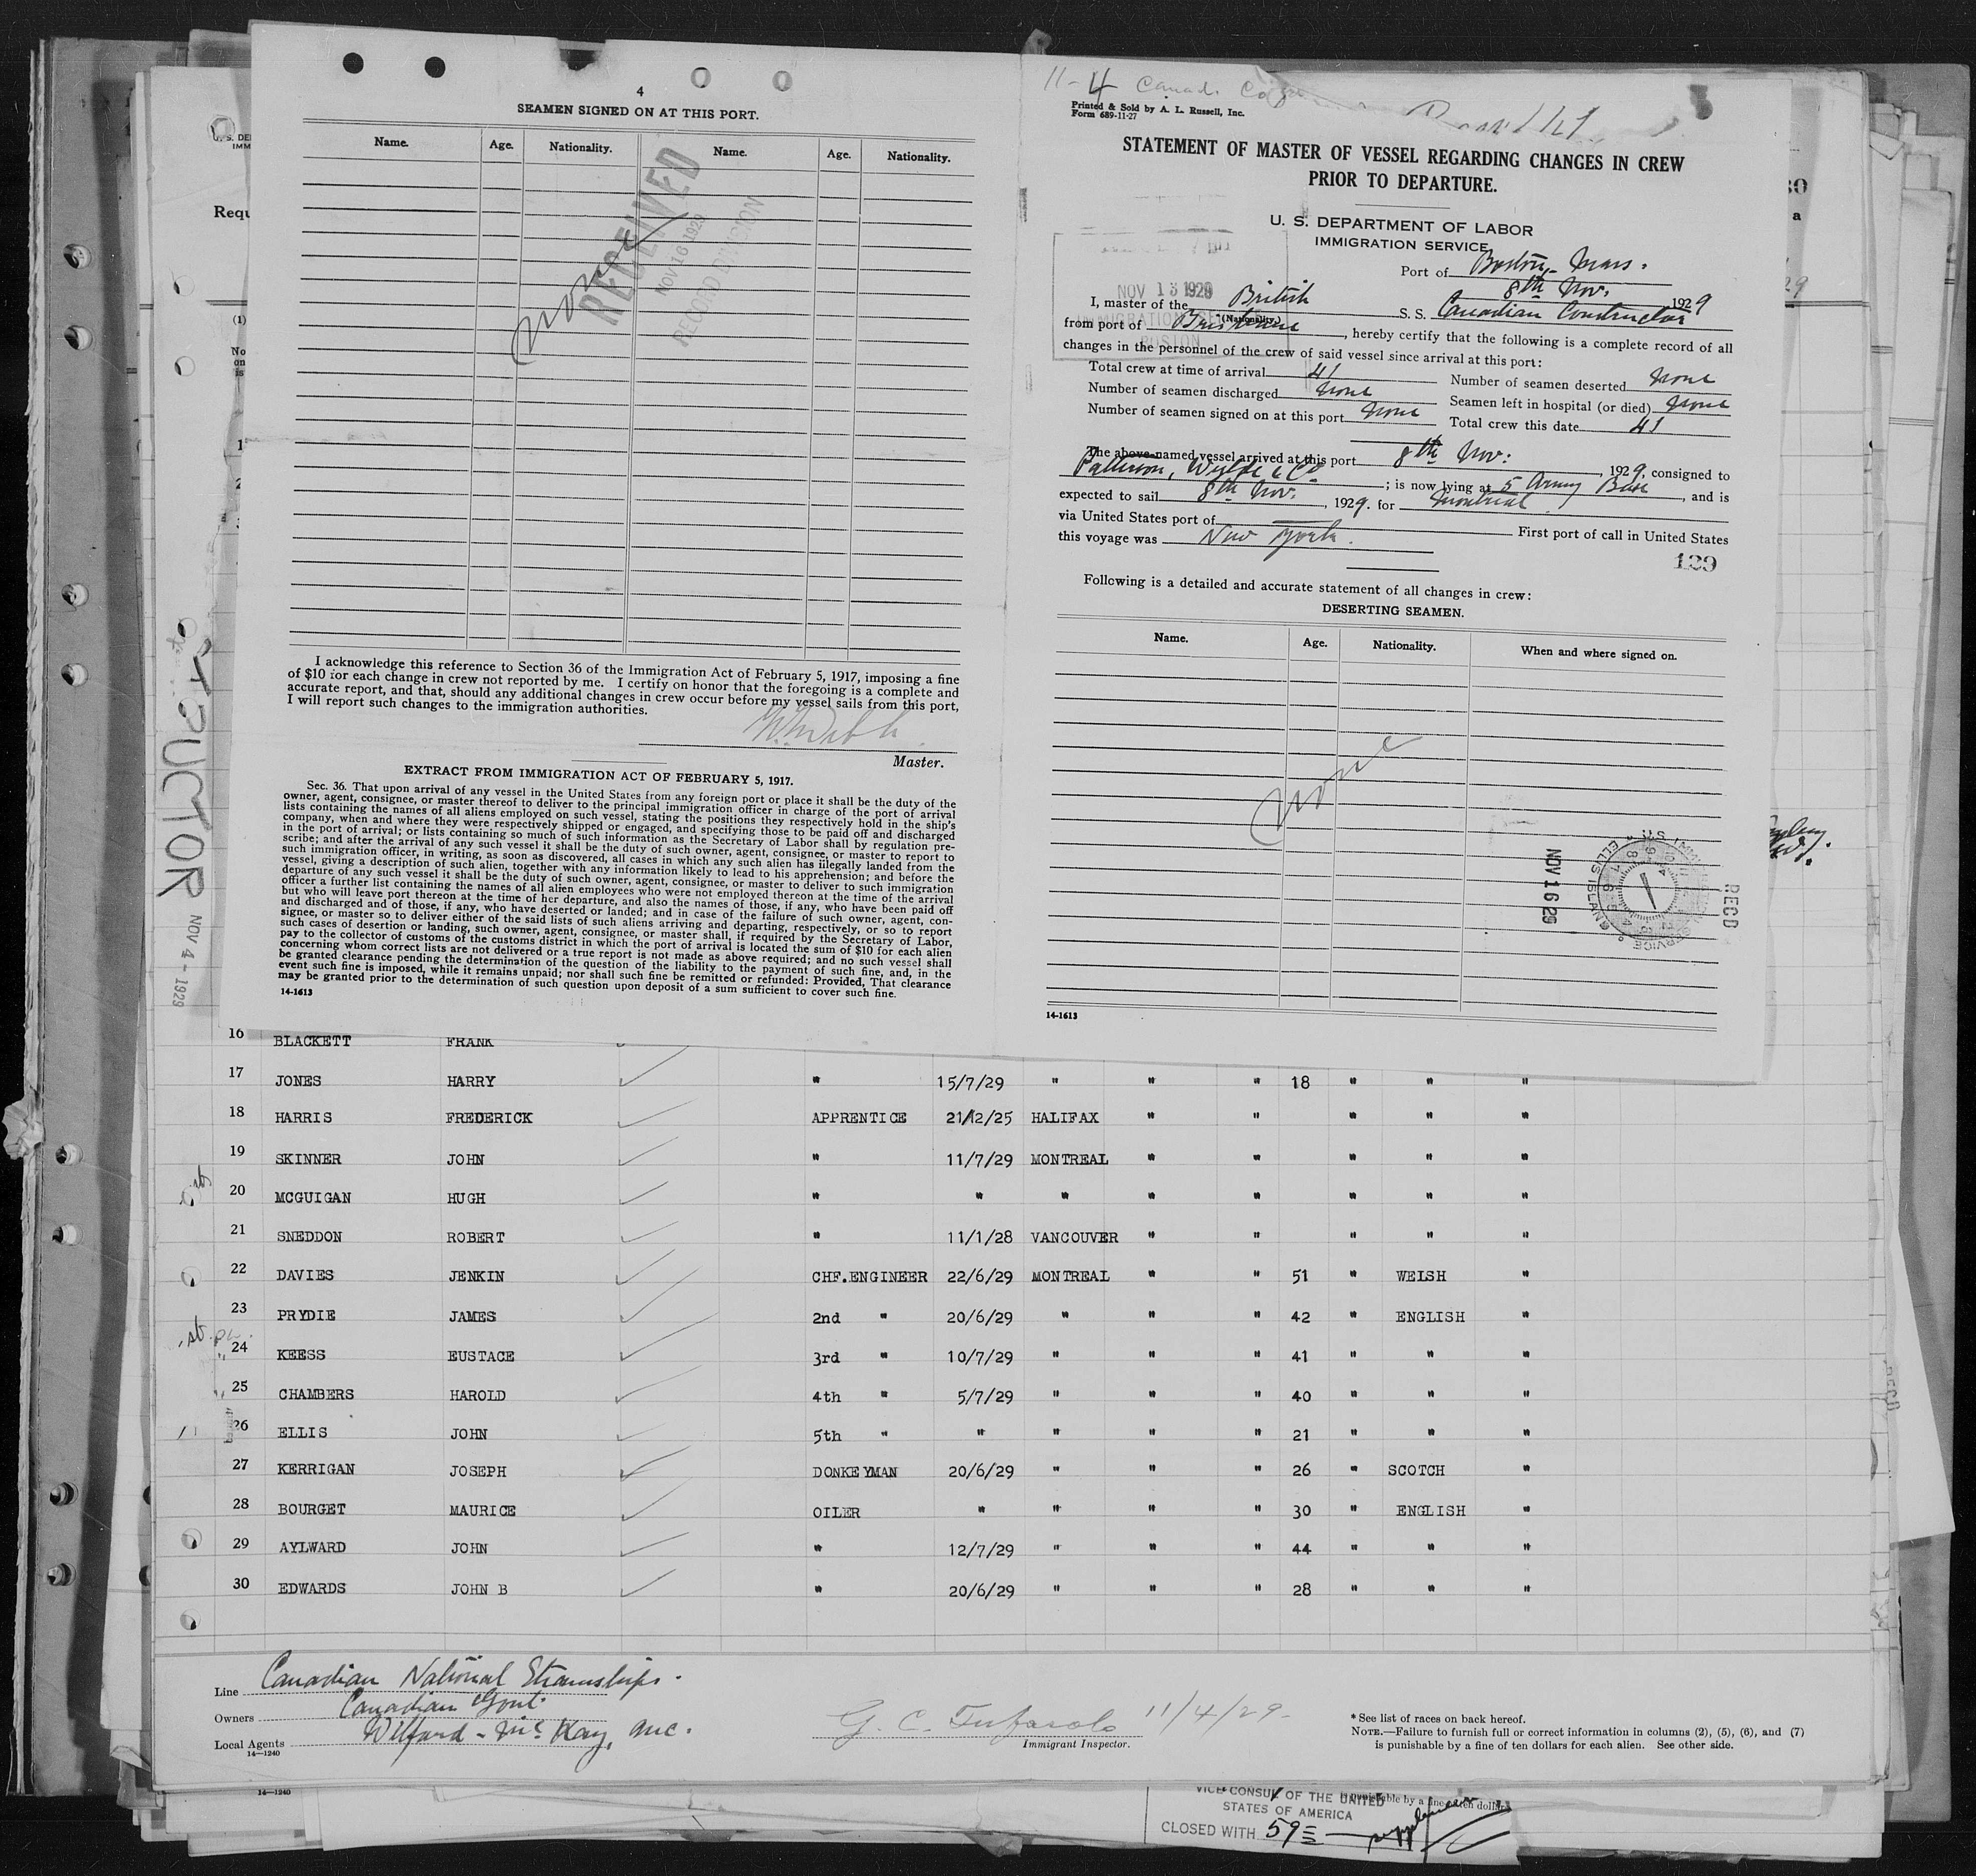 4
SEAMEN SIGNED ON AT THIS PORT.
Name. Age. Nationality. Name. Age. Nationality.
None
RECEIVED
NOV 16 1929
RECORD DIVISION
I acknowledge this reference to Section 36 of the Immigration Act of February 5, 1917, imposing a fine
of $10 for each change in crew not reported by me. I certify on honor that the foregoing is a complete and
accurate report, and that, should any additional changes in crew occur before my vessel sails from this port,
I will report such changes to the immigration authorities.
Master.
EXTRACT FROM IMMIGRATION ACT OF FEBRUARY 5, 1917.
Sec. 36. That upon arrival of any vessel in the United States from any foreign port or place it shall be the duty of the
owner, agent, consignee, or master thereof to deliver to the principal immigration officer in charge of the port of arrival
lists containing the names of all aliens employed on such vessel, stating the positions they respectively hold in the ship's
company, when and where they were respectively shipped or engaged, and specifying those to be paid off and discharged
in the port of arrival; or lists containing so much of such information as the Secretary of Labor shall by regulation pre-
scribe; and after the arrival of any such vessel it shall be the duty of such owner, agent, consignee, or master to report to
such immigration officer, in writing, as soon as discovered, all cases in which any such alien has illegally landed from the
vessel, giving a description of such alien, together with any information likely to lead to his apprehension; and before the
departure of any such vessel it shall be the duty of such owner, agent, consignee, or master to deliver to such immigration
officer a further list containing the names of all alien employees who were not employed thereon at the time of the arrival
but who will leave port thereon at the time of her departure, and also the names of those, if any, who have been paid off
and discharged and of those, if any, who have deserted or landed; and in case of the failure of such owner, agent, con-
signee, or master so to deliver either of the said lists of such aliens arriving and departing, respectively, or so to report
such cases of desertion or landing, such owner, agent, consignee, or master shall, if required by the Secretary of Labor,
pay to the collector of customs of the customs district in which the port of arrival is located the sum of $10 for each alien
concerning whom correct lists are not delivered or a true report is not made as above required; and no such vessel shall
be granted clearance pending the determination of the question of the liability to the payment of such fine, and, in the
event such fine is imposed, while it remains unpaid; nor shall such fine be remitted or refunded: Provided, That clearance
may be granted prior to the determination of such question upon deposit of a sum sufficient to cover such fine.
14-1613
11-4 Canad.
Printed & Sold by A. L. Russell, Inc.
Form 689-11-27
STATEMENT OF MASTER OF VESSEL REGARDING CHANGES IN CREW
PRIOR TO DEPARTURE.
U. S. DEPARTMENT OF LABOR
IMMIGRATION SERVICE
Port of Boston, Mass.
8th Nov. 1929
NOV 13 1929
IMMIGRATION
BOSTON
I, master of the British S. S. Canadian Constructor
(Nationality)
from port of Brisbane, hereby certify that the following is a complete record of all
changes in the personnel of the crew of said vessel since arrival at this port:
Total crew at time of arrival 41 Number of seamen deserted None
Number of seamen discharged None Seamen left in hospital (or died) None
Number of seamen signed on at this port None Total crew this date 41
The above-named vessel arrived at this port 8th Nov: , 1929, consigned to
Patterson, Wylde & Co ; is now lying at 5 Army Base, and is
expected to sail 8th Nov. , 1929. for Montreal.
via United States port of First port of call in United States
this voyage was New York.
129
Following is a detailed and accurate statement of all changes in crew:
DESERTING SEAMEN.
Name. Age. Nationality. When and where signed on.
None
NOV 16 29
ELLIS ISLAND
RECD
14-1613
Requ
(1)
STRUCTOR
NOV 4 - 1929
16 BLACKETT FRANK
17 JONES HARRY " 15/7/29 " " " 18 " " "
18 HARRIS FREDERICK APPRENTICE 21/12/25 HALIFAX " " " " "
19 SKINNER JOHN " 11/7/29 MONTREAL " " " " "
20 MCGUIGAN HUGH " " " " " " " "
21 SNEDDON ROBERT " 11/1/28 VANCOUVER " " " " "
22 DAVIES JENKIN CHF.ENGINEER 22/6/29 MONTREAL " " 51 " WELSH "
23 PRYDIE JAMES 2nd " 20/6/29 " " " 42 " ENGLISH "
24 KEESS EUSTACE 3rd " 10/7/29 " " " 41 " " "
25 CHAMBERS HAROLD 4th " 5/7/29 " " " 40 " " "
26 ELLIS JOHN 5th " " " " " 21 " " "
27 KERRIGAN JOSEPH DONKEYMAN 20/6/29 " " " 26 " SCOTCH "
28 BOURGET MAURICE OILER " " " " 30 " ENGLISH "
29 AYLWARD JOHN " 12/7/29 " " " 44 " " "
30 EDWARDS JOHN B " 20/6/29 " " " 28 " " "
Line Canadian National Steamships.
Owners Canadian Govt.
Local Agents Wilford-McKay, Inc.
14—1240
G. C. Tufarolo 11/4/29
Immigrant Inspector.
* See list of races on back hereof.
NOTE.—Failure to furnish full or correct information in columns (2), (5), (6), and (7)
is punishable by a fine of ten dollars for each alien. See other side.
14—1240
VICE CONSUL OF THE UNITED
STATES OF AMERICA
CLOSED WITH 59